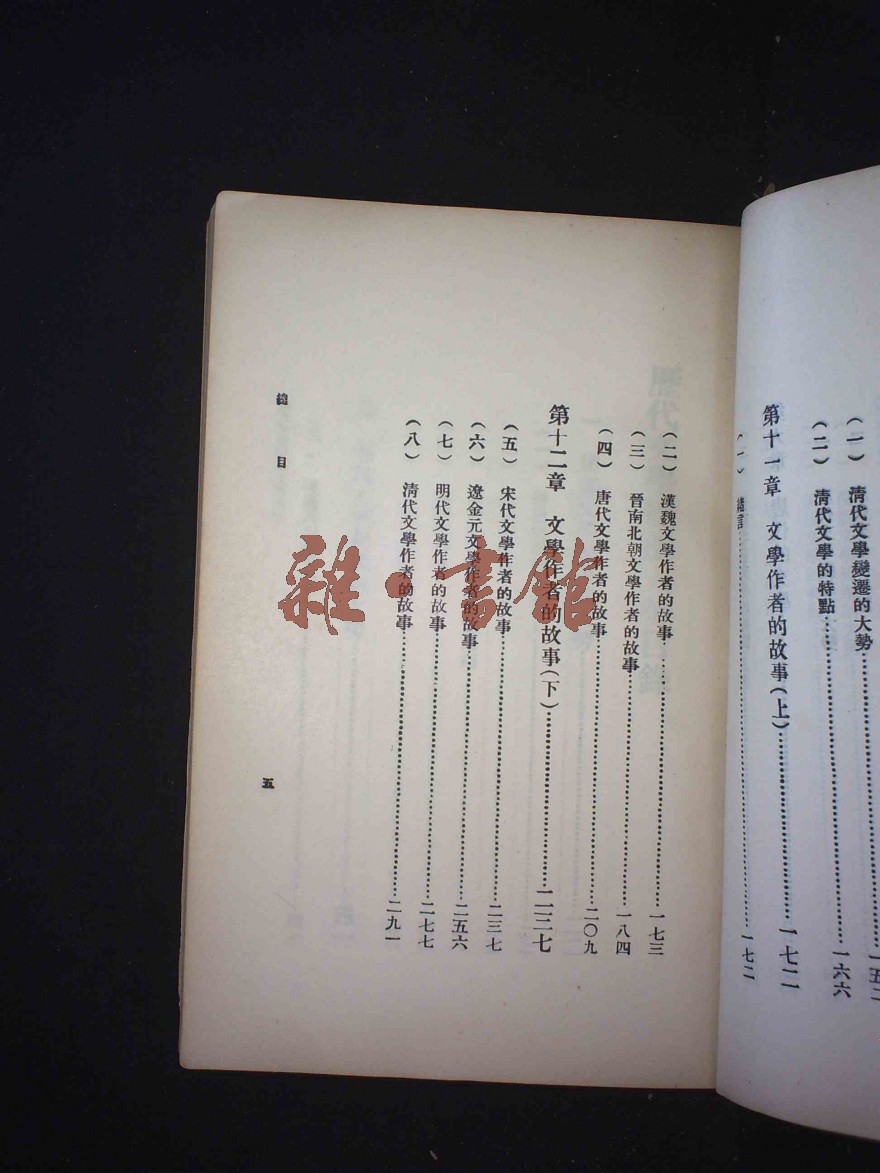 (一) 清代文學變遷的大勢
(二) 清代文學的特點……一六六
第十一章 文學作者的故事(上)……一七二
(一) 緒言……一七二
(二) 漢魏文學作者的故事……一七三
(三) 晉南北朝文學作者的故事……一八四
(四) 唐代文學作者的故事……二〇九
第十二章 文學作者的故事(下)……二三七
(五) 宋代文學作者的故事……二三七
(六) 遼金元文學作者的故事……二五六
(七) 明代文學作者的故事……二七七
(八) 清代文學作者的故事……二九一
總目
五
雜·書館